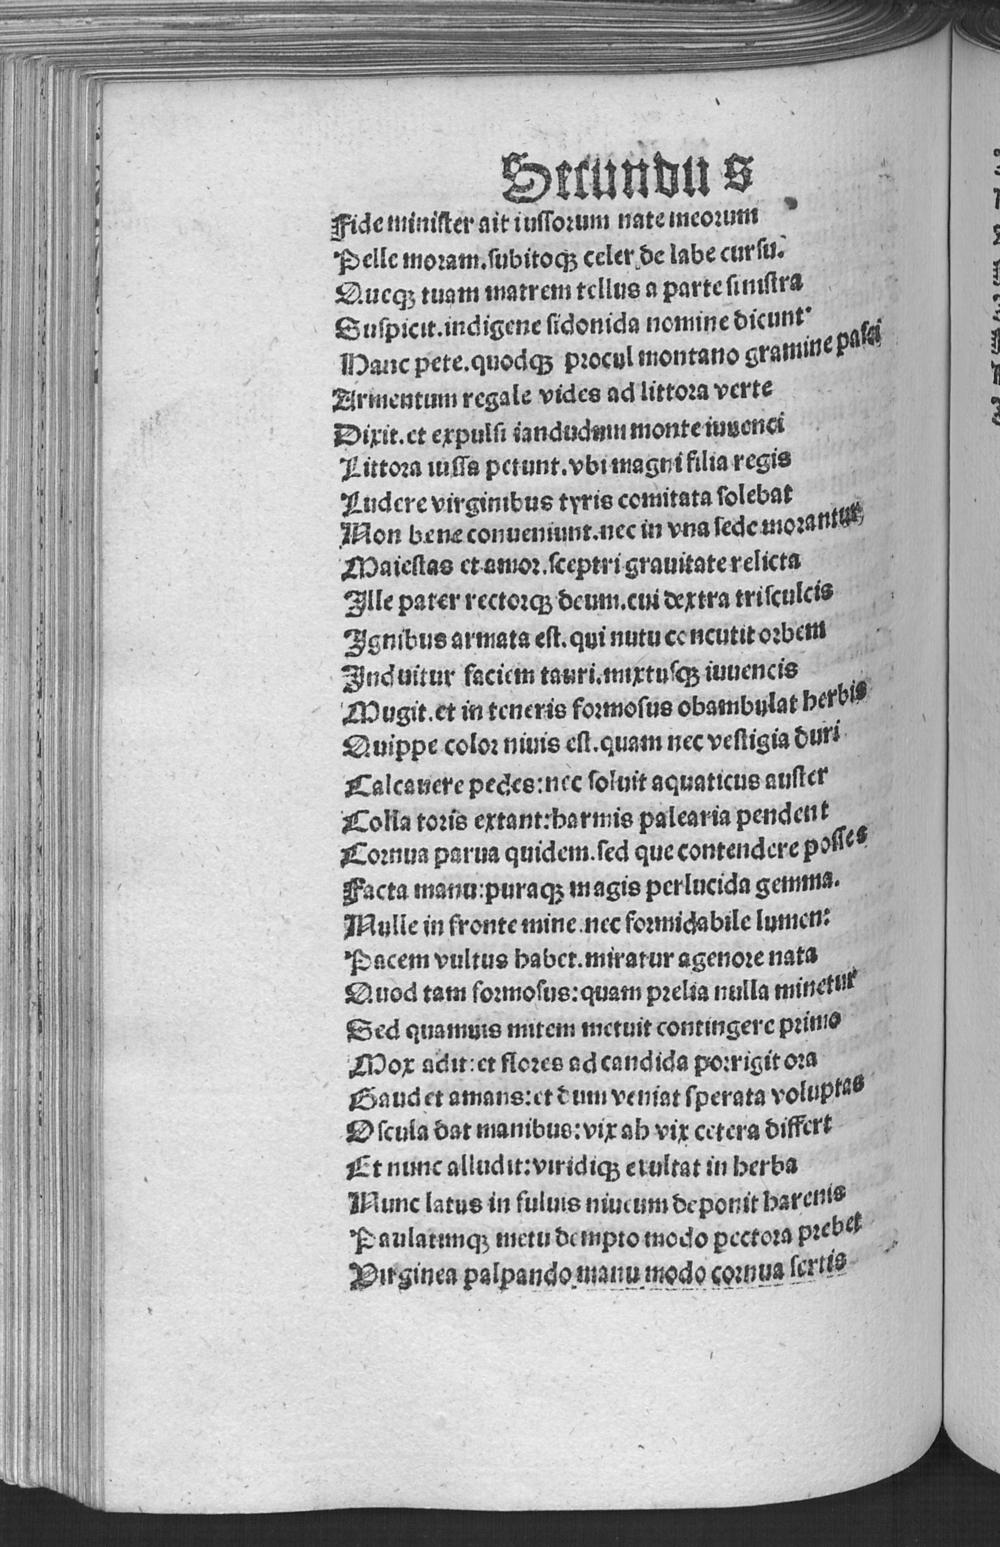 Secundus
Fide minister ait iussorum nate meorum
Pelle moram.subitoqꝫ celer de labe cursu.
Queqꝫ tuam matrem tellus a parte sinistra
Suspicit.indigene sidonida nomine dicunt·
Hanc pete.quodqꝫ procul montano gramine pasci
Armentum regale vides ad littora verte
Dixit.et expulsi iandudum monte iuuenci
Littora iussa petunt.vbi magni filia regis
Ludere virginibus tyris comitata solebat
Non bene conueniunt.nec in vna sede morantur
Maiestas et amor.sceptri grauitate relicta
Ille pater rectorqꝫ deum.cui dextra trisculcis
Ignibus armata est.qui nutu concutit orbem
Induitur faciem tauri.mixtusqꝫ iuuencis
Mugit.et in teneris formosus obambulat herbis
Quippe color niuis est.quam nec vestigia duri
Calcauere pedes:nec soluit aquaticus auster
Colla toris extant:harmis palearia pendent
Cornua parua quidem.sed que contendere posses
Facta manu:puraqꝫ magis perlucida gemma.
Nulle in fronte mine.nec formidabile lumen:
Pacem vultus habet.miratur agenore nata
Quod tam formosus:quam prelia nulla minetur
Sed quamuis mitem metuit contingere primo
Mox adit:et flores ad candida porrigit ora
Gaudet amans:et dum veniat sperata voluptas
Oscula dat manibus:vix ah vix cetera differt
Et nunc alludit:viridiqꝫ exultat in herba
Nunc latus in fuluis niueum deponit harenis
Paulatimqꝫ metu dempto modo pectora prebet
Virginea palpando manu modo cornua sertis